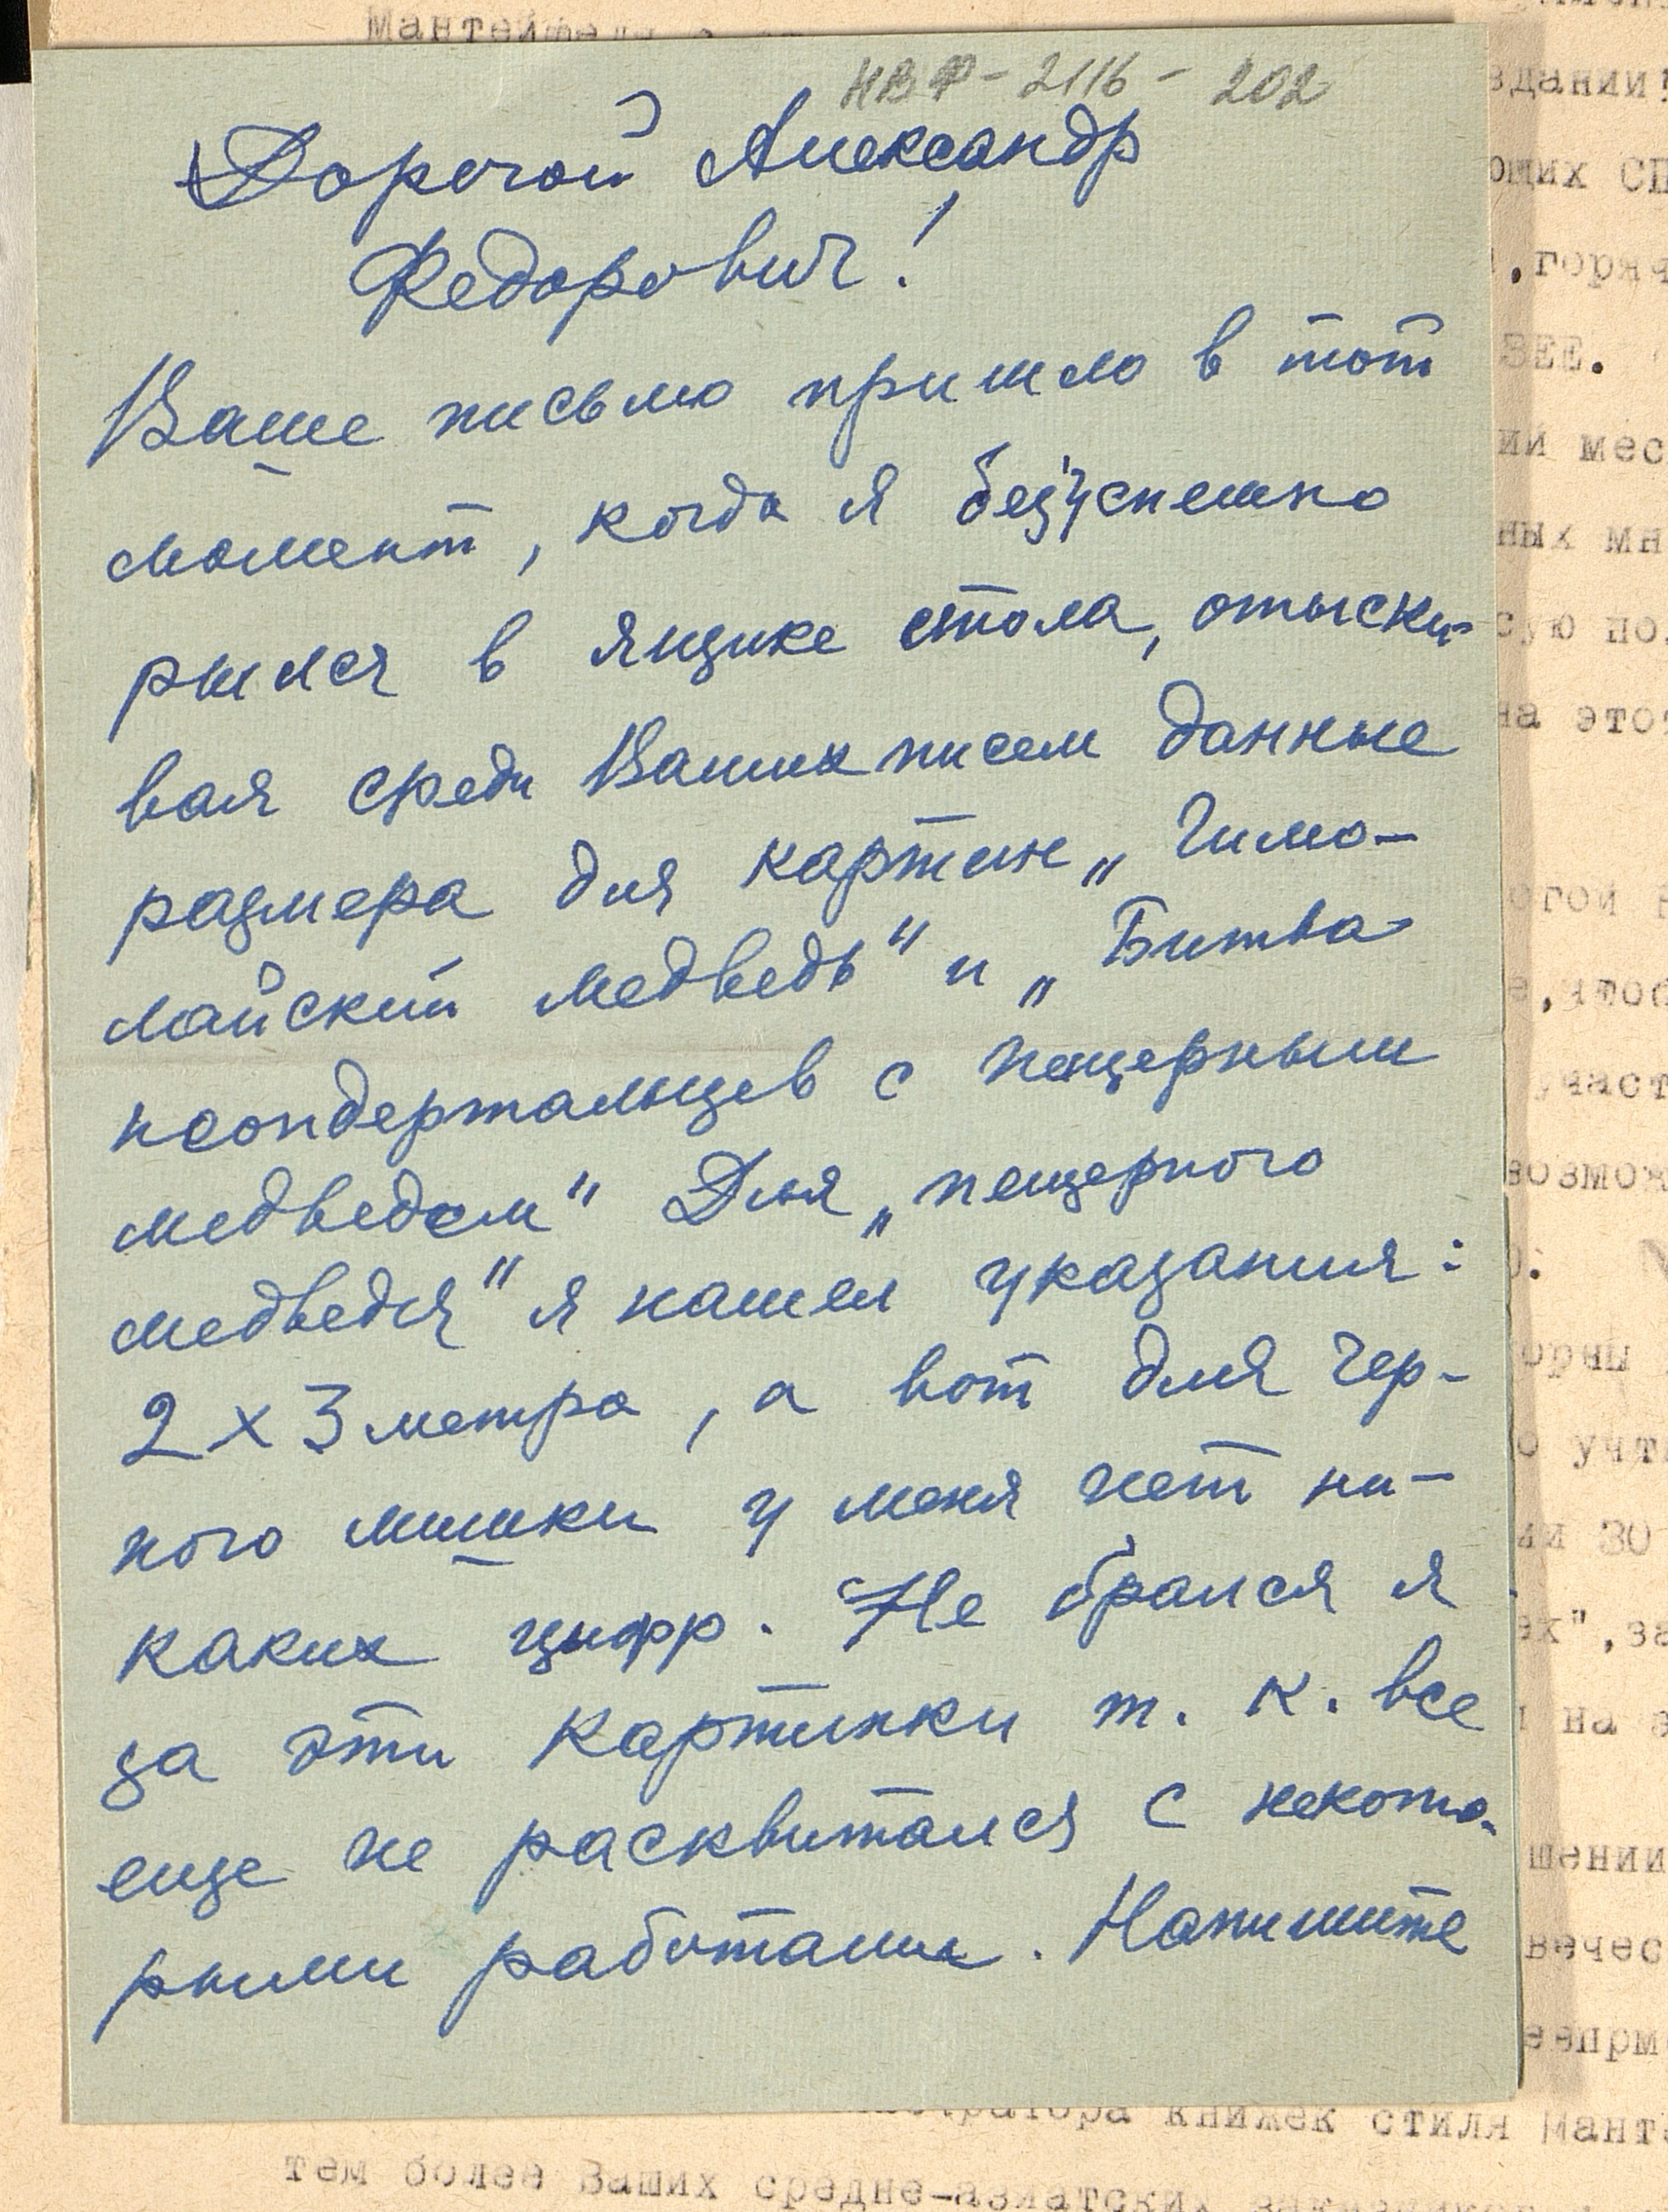 Мантейфеля
НВФ-2116-202
Дорогой Александр
Федорович!
Ваше письмо пришло в тот
момент, когда я безуспешно
рылся в ящике стола, отыски-
вая среди Ваших писем данные
размера для картин „Гима-
лайский медведь" и „Битва
неондертальцев с пещерным
медведем" Для „пещерного
медведя" я нашел указания:
2 х 3 метра, а вот для чер-
ного мишки у меня нет ни-
каких цифр. Не брался я
за эти картинки т. к. все
еще не расквитался с некото-
рыми работами. Напишите
здании
ющих СП
,горяч
ЗЕЕ.
ий мес
ных мн
сую по
на этот
огой
,чтоб
,част
возмож
орны
о учт
ми 30
ех",за
на э
шении
вечес
книжек стиля Мант
тем более Ваших средне-азиатских